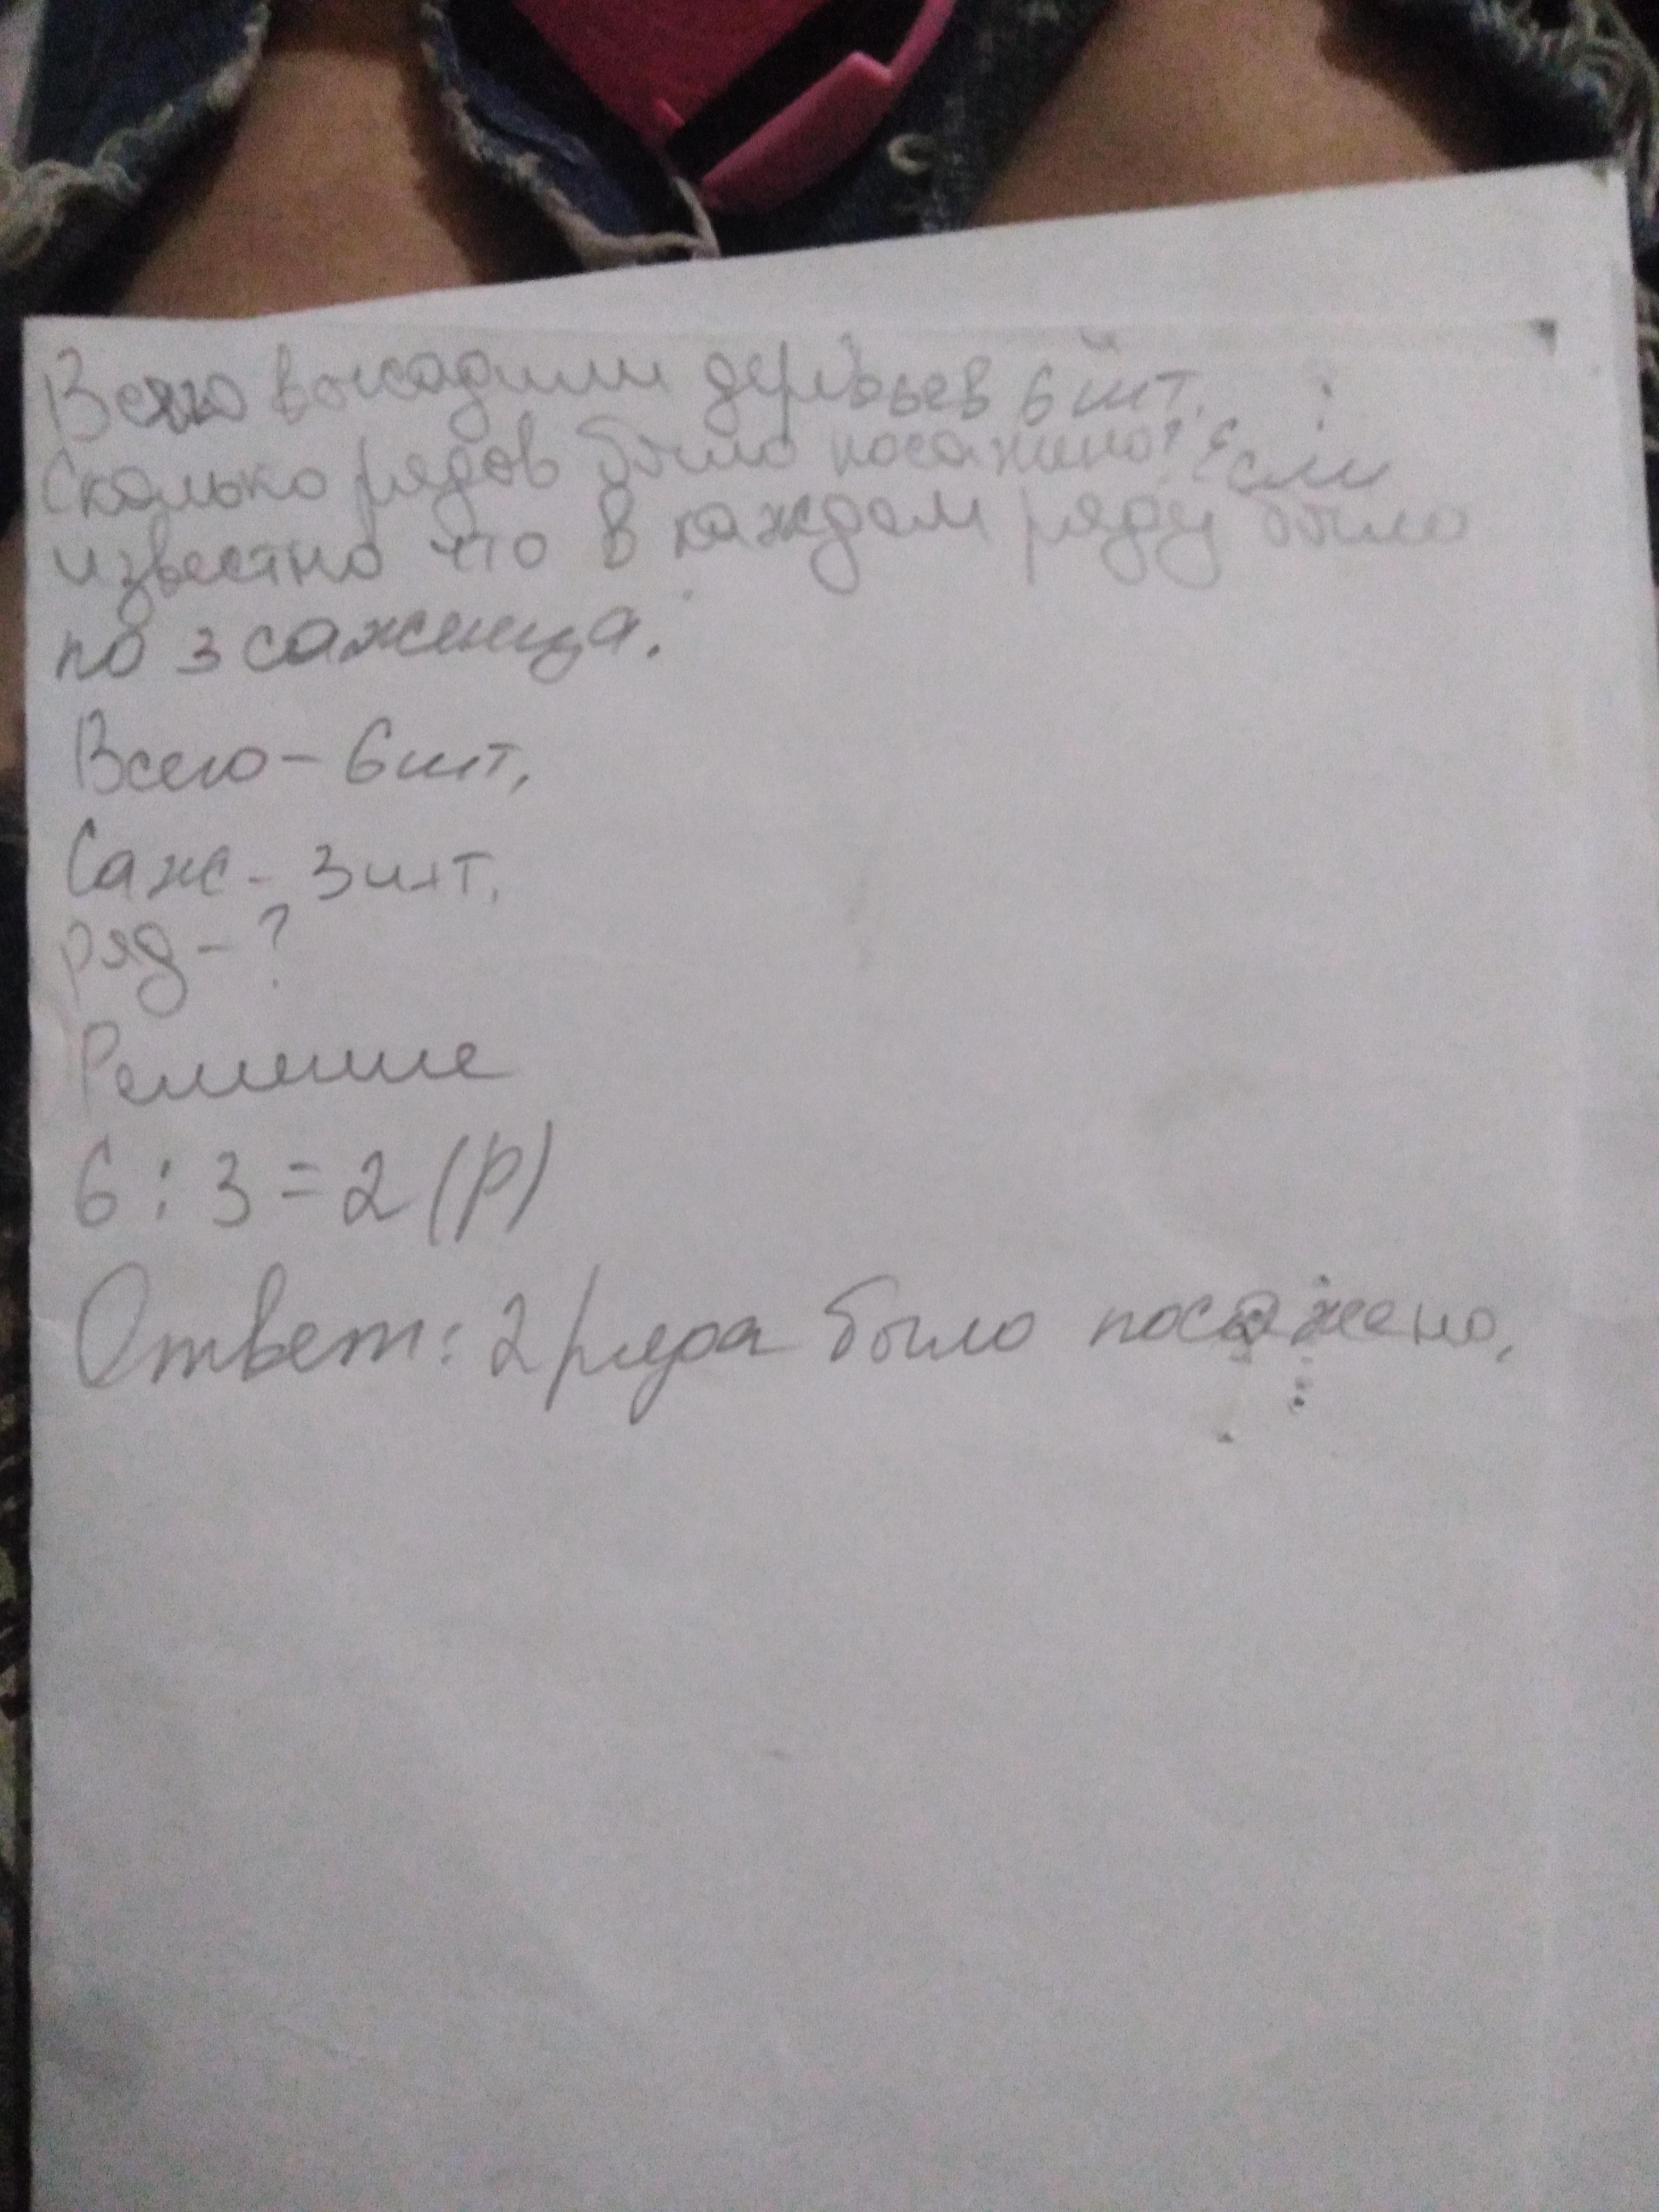 Всего высадили деревьев 6 шт.
Сколько рядов было посажено? Если
известно что в каждом ряду было
по 3 саженца.
Всего - 6 шт.
Саж - 3 шт.
ряд - ?
Решение
6 : 3 = 2 (р)
Ответ: 2 ряда было посажено.